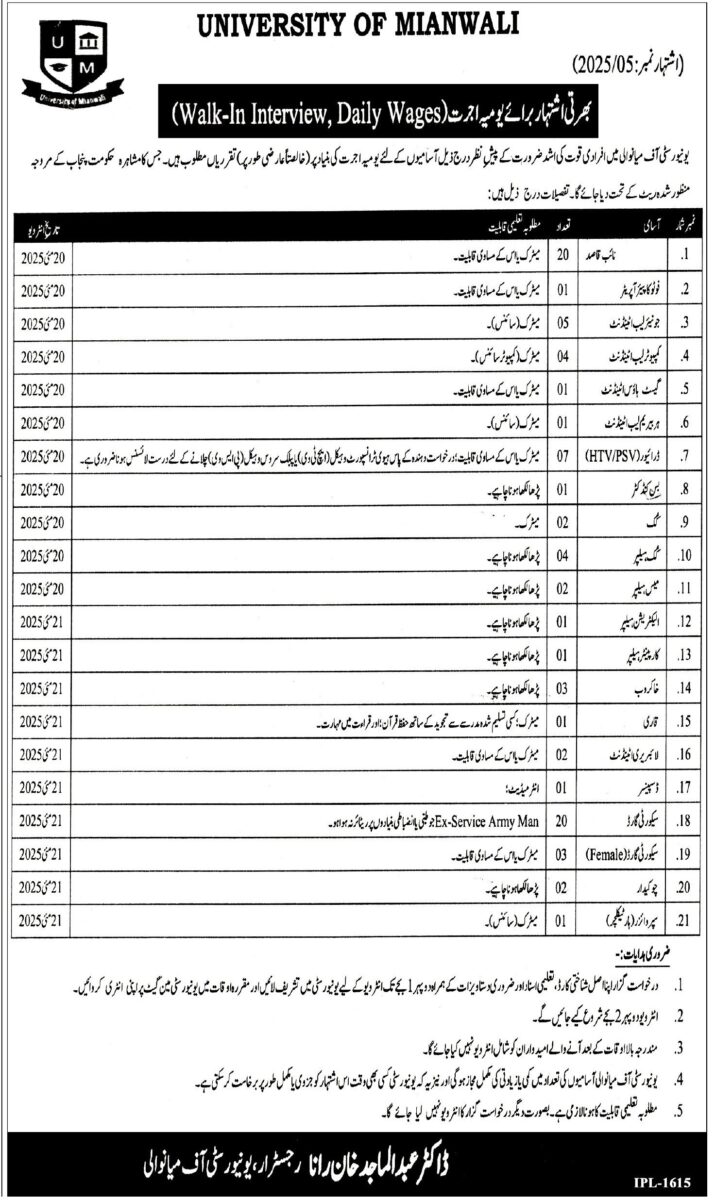 UNIVERSITY OF MIANWALI
U M
University of Mianwali
(اشتہار نمبر: 2025/05)
بھرتی اشتہار برائے یومیہ اجرت (Walk-In Interview, Daily Wages)
یونیورسٹی آف میانوالی میں افرادی قوت کی اشد ضرورت کے پیش نظر درج ذیل آسامیوں کے لئے یومیہ اجرت کی بنیاد پر (خالصتاً عارضی طور پر) تقرریاں مطلوب ہیں۔ جس کا مشاہرہ حکومت پنجاب کے مروجہ
منظور شدہ ریٹ کے تحت دیا جائے گا۔ تفصیلات درج ذیل ہیں:
نمبر شمار آسامی تعداد مطلوبہ تعلیمی قابلیت تاریخ انٹرویو
1. نائب قاصد 20 میٹرک یا اس کے مساوی قابلیت۔ 20 مئی 2025
2. فوٹو کاپیئر آپریٹر 01 میٹرک یا اس کے مساوی قابلیت۔ 20 مئی 2025
3. جونیئر لیب اٹینڈنٹ 05 میٹرک (سائنس)۔ 20 مئی 2025
4. کمپیوٹر لیب اٹینڈنٹ 04 میٹرک (کمپیوٹر سائنس)۔ 20 مئی 2025
5. گیسٹ ہاؤس اٹینڈنٹ 01 میٹرک یا اس کے مساوی قابلیت۔ 20 مئی 2025
6. ہربیریم لیب اٹینڈنٹ 01 میٹرک (سائنس)۔ 20 مئی 2025
7. ڈرائیور (HTV/PSV) 07 میٹرک یا اس کے مساوی قابلیت؛ درخواست دہندہ کے پاس ہیوی ٹرانسپورٹ وہیکل (ایچ ٹی وی) یا پبلک سروس وہیکل (پی ایس وی) چلانے کے لئے درست لائسنس ہونا ضروری ہے۔ 20 مئی 2025
8. بس کنڈکٹر 01 پڑھا لکھا ہونا چاہیے۔ 20 مئی 2025
9. کک 02 میٹرک۔ 20 مئی 2025
10. کک ہیلپر 04 پڑھا لکھا ہونا چاہیے۔ 20 مئی 2025
11. میس ہیلپر 02 پڑھا لکھا ہونا چاہیے۔ 20 مئی 2025
12. الیکٹریشن ہیلپر 01 پڑھا لکھا ہونا چاہیے۔ 21 مئی 2025
13. کارپینٹر ہیلپر 01 پڑھا لکھا ہونا چاہیے۔ 21 مئی 2025
14. خاکروب 03 پڑھا لکھا ہونا چاہیے۔ 21 مئی 2025
15. قاری 01 میٹرک؛ کسی تسلیم شدہ مدرسے سے تجوید کے ساتھ حفظ قرآن؛ اور قراءت میں مہارت۔ 21 مئی 2025
16. لائبریری اٹینڈنٹ 02 میٹرک یا اس کے مساوی قابلیت۔ 21 مئی 2025
17. ڈسپینسر 01 انٹرمیڈیٹ؛ 21 مئی 2025
18. سیکورٹی گارڈ 20 Ex-Service Army Man جو طبی یا انضباطی بنیادوں پر ریٹائر نہ ہوا ہو۔ 21 مئی 2025
19. سیکورٹی گارڈ (Female) 03 میٹرک یا اس کے مساوی قابلیت۔ 21 مئی 2025
20. چوکیدار 02 پڑھا لکھا ہونا چاہیے۔ 21 مئی 2025
21. سپروائزر (ہارٹیکلچر) 01 میٹرک (سائنس)۔ 21 مئی 2025
ضروری ہدایات:-
1. درخواست گزار اپنا اصل شناختی کارڈ، تعلیمی اسناد اور ضروری دستاویزات کے ہمراہ دوپہر 1 بجے تک انٹرویو کے لیے یونیورسٹی میں تشریف لائیں اور مقررہ اوقات میں یونیورسٹی مین گیٹ پر اپنی انٹری کروائیں۔
2. انٹرویو دوپہر 2 بجے شروع کیے جائیں گے۔
3. مندرجہ بالا اوقات کے بعد آنے والے امیدواران کو شامل انٹرویو نہیں کیا جائے گا۔
4. یونیورسٹی آف میانوالی آسامیوں کی تعداد میں کمی یا زیادتی کی مکمل مجاز ہوگی اور نیز یہ کہ یونیورسٹی کسی بھی وقت اس اشتہار کو جزوی یا مکمل طور پر برخاست کر سکتی ہے۔
5. مطلوبہ تعلیمی قابلیت کا ہونا لازمی ہے۔ بصورت دیگر درخواست گزار کا انٹرویو نہیں لیا جائے گا۔
ڈاکٹر عبدالماجد خان رانا رجسٹرار، یونیورسٹی آف میانوالی
IPL-1615